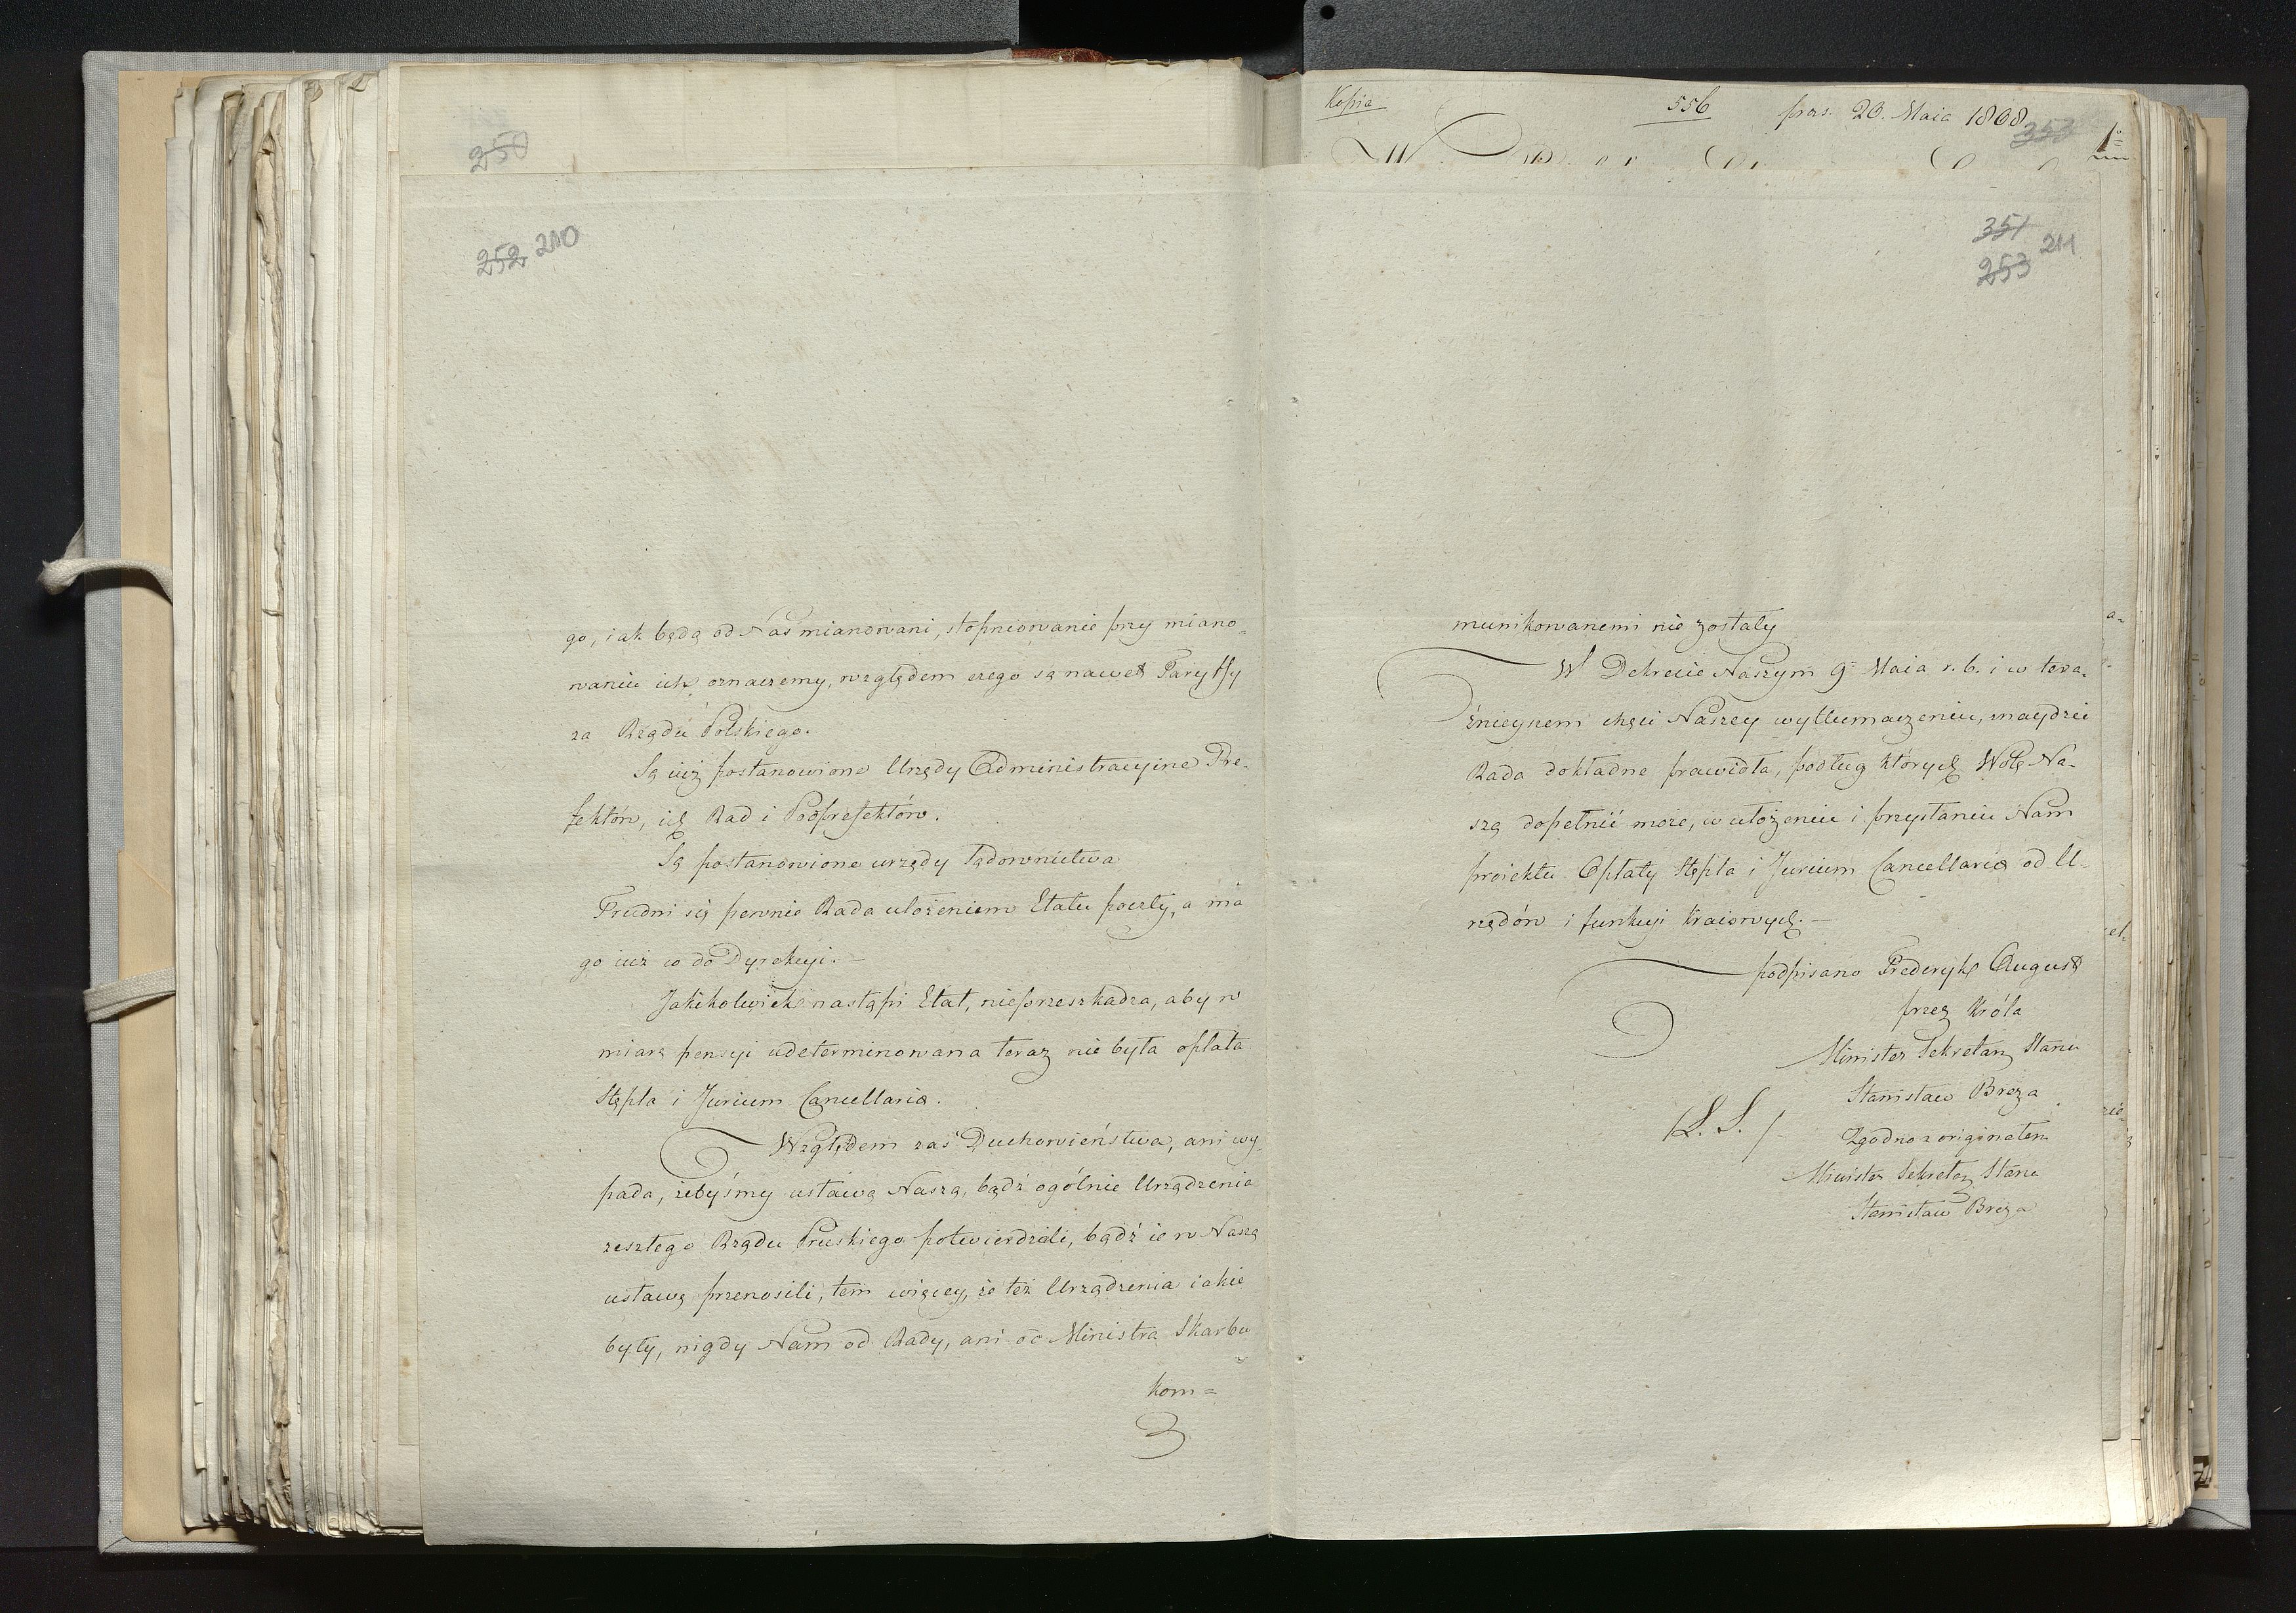 250
252 210
go, iak będą od Nas mianowani, stopniowanie przy miano=
waniu ich oznaczemy, względem czego są nawet Taryffy
za Rządu Polskiego.
Są iuż postanowione Urzędy Administracyine Pre-
fektów, ich Rad i Podprefektów.
Są postanowione urzędy Sądownictwa
Trudni się pewnie Rada ułożeniem Etatu poczty, a ma
go iuż co do Dyrekcyi. —
Jakikolwiek nastąpi Etat, nieprzeszkadza, aby w
miarę pensyi udeterminowana teraz nie była opłata
Stępla i Jurium Cancellariæ.
Względem zaś Duchowieństwa, ani wy-
pada, żebyśmy ustawą Naszą, bądź ogólnie Urządzenia
zeszłego Rządu Pruskiego potwierdzili, bądź ie w Naszą
ustawę przenosili, tem więcey, że też Urządzenia iakie
były, nigdy Nam od Rady, ani od Ministra Skarbu
kom=
Kopia 556 præs. 20. Maia 1808 353
1º
351
253 211
munikowanemi nie zostały
W Dekrecie Naszym 9= Maia r. b. i w tera-
źnieyszem chęci Naszey wytłumaczeniu, znaydzie
Rada dokładne prawidła, podług których Wolę Na-
szą dopełnić może, w ułożeniu i przysłaniu Nam
proiektu Opłaty Stępla i Jurium Cancellariæ od U-
rzędów i funkcyi kraiowych. —
podpisano Fryderyk August
przez Króla
Minister Sekretarz Stanu
Stanisław Breza
(L. S.)
Zgodno z originałem
Minister Sekretarz Stanu
Stanisław Breza